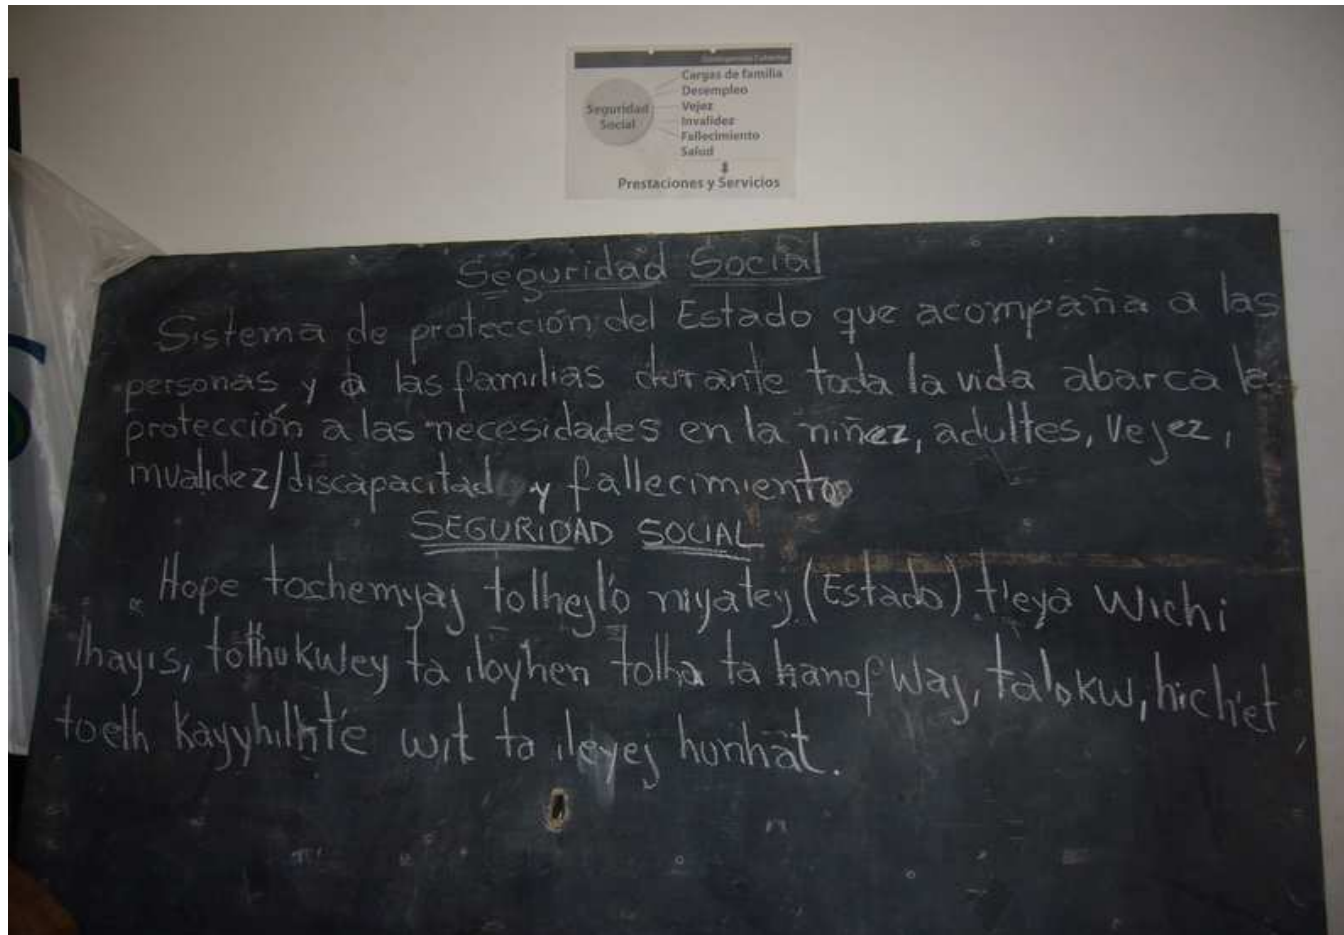 Cargas de familia
Desempleo
Seguridad Social
Vejez
Invalidez
Fallecimiento
Salud
Prestaciones y Servicios
Seguridad Social
Sistema de protección del Estado que acompaña a las
personas y a las familias durante toda la vida abarca la
protección a las necesidades en la niñez, adultes, vejez,
invalidez/discapacitad y fallecimiento
SEGURIDAD SOCIAL
Hope tochemyaj tolhejló niyatey (Estado) t'eya Wichi
lhayis, tothukwey ta iloyhen tolha ta hanofwaj, talokw, hich'et
toelh kayyhilht'e wit ta ileyej hunhat.